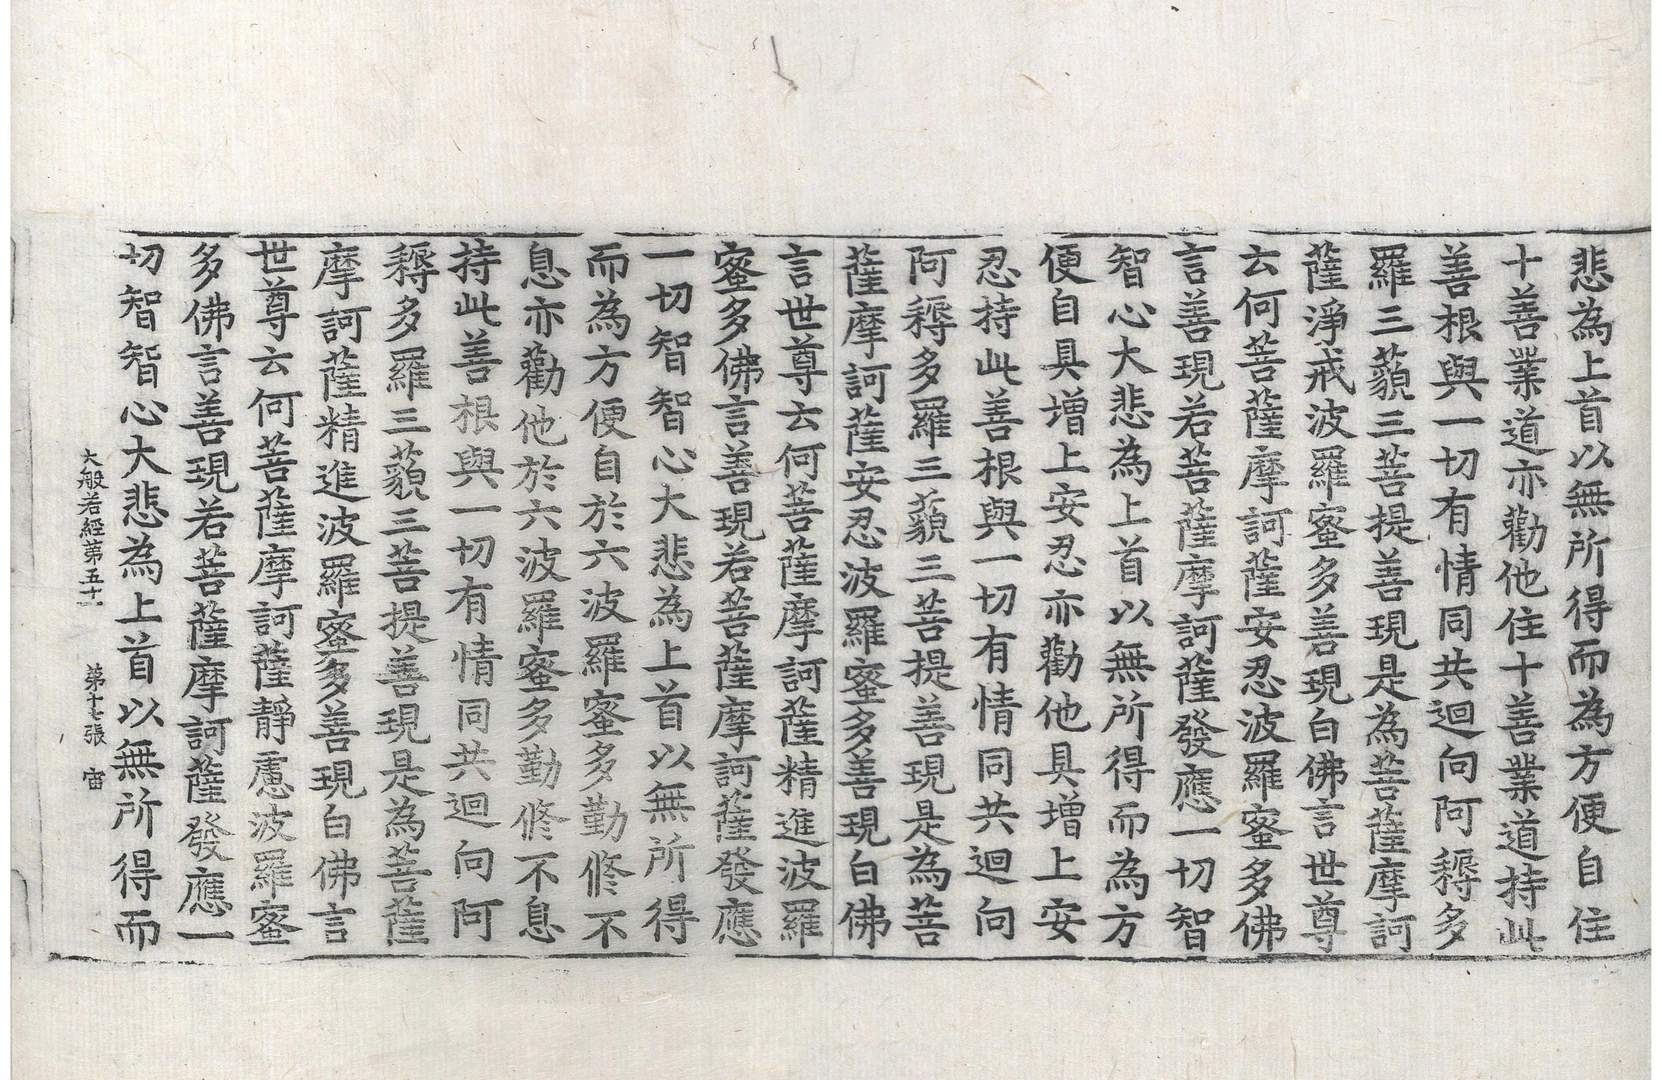 悲為上首以無所得而為方便自住
十善業道亦勸他住十善業道持此
善根與一切有情同共迴向阿耨多
羅三藐三菩提善現是為菩薩摩訶
薩淨戒波羅蜜多善現白佛言世尊
云何菩薩摩訶薩安忍波羅蜜多佛
言善現若菩薩摩訶薩發應一切智
智心大悲為上首以無所得而為方
便自具增上安忍亦勸他具增上安
忍持此善根與一切有情同共迴向
阿耨多羅三藐三菩提善現是為菩
薩摩訶薩安忍波羅蜜多善現白佛
言世尊云何菩薩摩訶薩精進波羅
蜜多佛言善現若菩薩摩訶薩發應
一切智智心大悲為上首以無所得
而為方便自於六波羅蜜多勤修不
息亦勸他於六波羅蜜多勤修不息
持此善根與一切有情同共迴向阿
耨多羅三藐三菩提善現是為菩薩
摩訶薩精進波羅蜜多善現白佛言
世尊云何菩薩摩訶薩靜慮波羅蜜
多佛言善現若菩薩摩訶薩發應一
切智智心大悲為上首以無所得而
大般若經第五十一 第十七張 宙